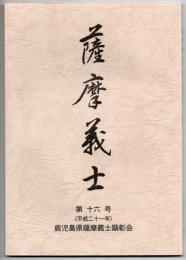 薩摩義士
第十六号
(平成二十一年)
鹿児島県薩摩義士顕彰会